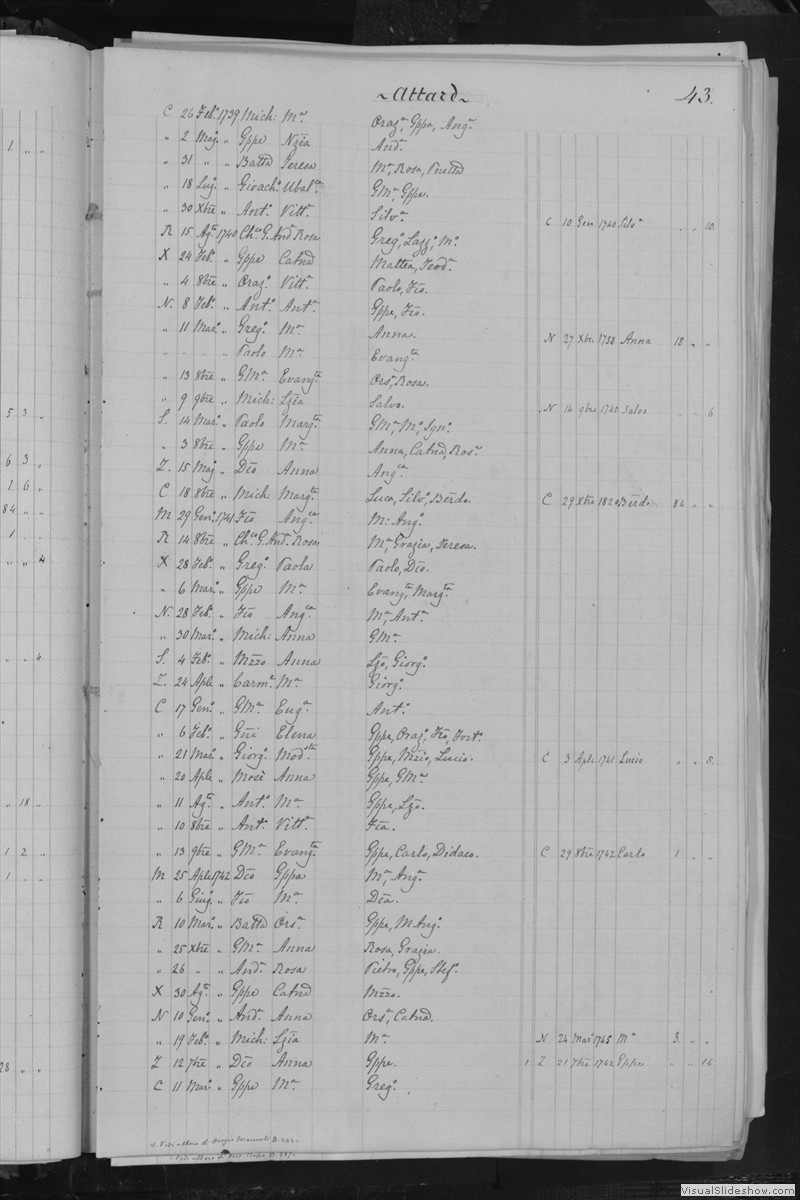 ~Attard~ 43.
C 26 Feb.º 1739 Mich: M.ª Oraz.ª, Gppa, Ang.ª
" 2 Mag. " Gppe Nzia And.ª
" 31 " " Batta Teresa M.ª, Rosa,
" 18 Lug. " Gioach.º Ubal.ª G M.ª, Gppe.
" 30 Xbre " Ant.º Vitt.ª Silv.ª C 10 Gen 1740 Silv.ª " " 10
R 15 Ag.º 1740 Ch.co G. And. Rosa Greg.º, Laz.º, M.º
X 24 Feb.º " Gppe Catnd Mattea, Teod.ª
" 4 8bre " Oraz.º Vitt.ª Paolo, Fco.
N. 8 Feb.º " Ant.º Ant.ª Gppe, Fco.
" 11 Mar.º " Greg.º M.ª Anna. N 27 Xbre 1758 Anna 18 " "
" " " Paolo M.ª Evang.ta
" 13 8bre " G M.ª Evang.ta Ors.ª, Rosa.
" 9 9bre " Mich: Lzia Salvo. N 14 9bre 1740 Salvo " " 6
S. 14 Mar.º " Paolo Marg.ta G M.ª, M.ª, Ign.º
" 3 8bre " Gppe M.ª Anna, Catnd, Ros.ª
Z. 15 Mag " Dco Anna Ang.ca
C 18 8bre " Mich: Marg.ta Luca, Silv.º, Berdo. C 29 Xbre 1820 Berdo 84 " "
M 29 Gen.º 1741 Fco Ang.ca M: Ang.º
R 14 8bre " Ch.co G. And. Rosa M.ª, Grazia, Teresa.
X 28 Feb.º " Greg.º Paola Paolo, Dco.
" 6 Mar.º " Gppe M.ª Evang.ta, Marg.ta
N. 28 Feb.º " Fco Ang.ca M.ª, Ant.ª
" 30 Mar.º " Mich: Anna G M.ª
S. 4 Feb.º " Mzzo Anna Lzo, Giorg.º
Z. 24 Aple " Carm.º M.ª Giorg.º
C 17 Gen.º " G M.ª Eug.ª Ant.º
" 6 Feb.º " Gni Elena Gppa, Oraz.º, Fco, Fort.º
" 21 Mar.º " Giorg.º Mod.sta Gppa, Nzio, Lucio. C 3 Aple 1741 Lucio " " 8.
" 20 Aple " Mosè Anna Gppa, G M.ª
" 11 Ag.º " Ant.º M.ª Gppe, Lzo.
" 10 8bre " Ant.º Vitt.ª Fca.
" 13 9bre " G M.ª Evang.ta Gppa, Carlo, Didaco. C 29 8bre 1742 Carlo 1 " "
M 25 Aple 1742 Dco Gppa M.ª, Ang.ª
" 6 Giug.º " Fco M.ª Dca.
R 10 Mar.º " Batta Ors.ª Gppa, M Ang.º
" 25 Xbre " G M.ª Anna Rosa, Grazia.
" 26 " " And.ª Rosa Pietro, Gppa, Stef.º
X 30 Ag.º " Gppe Catnd Mzzo.
N 10 Gen.º " And.ª Anna Ors.ª, Catnd.
" 19 Feb.º " Mich: Lzia M.ª N 24 Mar 1745 M.ª 3 " "
Z 12 7bre " Dco Anna Gppe. 1 Z 21 7bre 1742 Gppe " " 16
C 11 Mar.º " Gppe M.ª Greg.º
VisualSlideshow.com